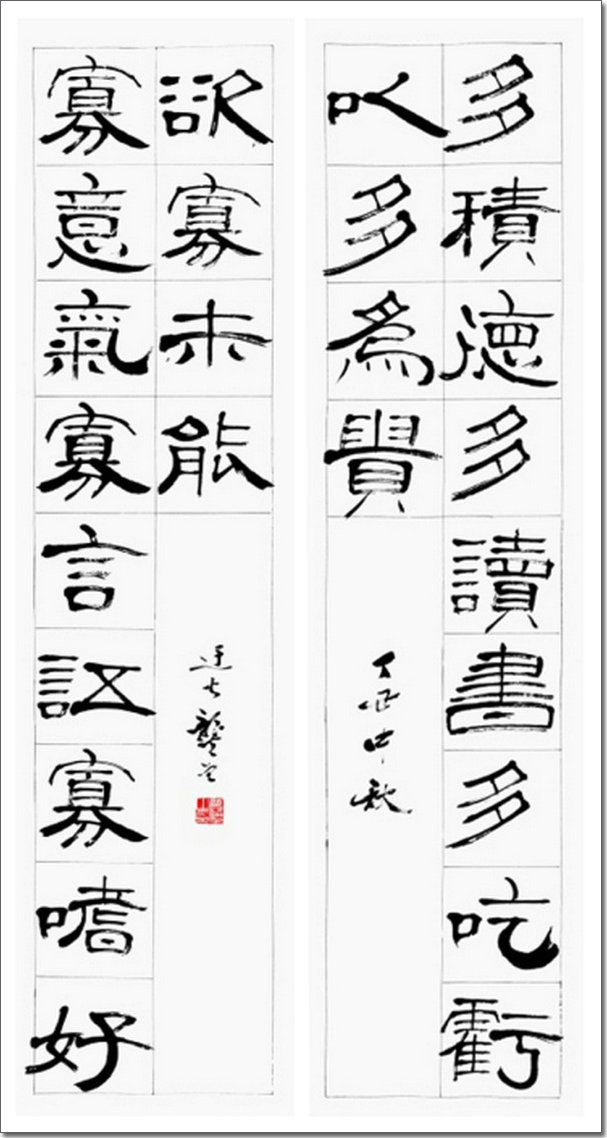 多積德多讀書多吃虧
以多為貴
中秋
寡意氣寡言語寡嗜好
欲寡未能
龔望